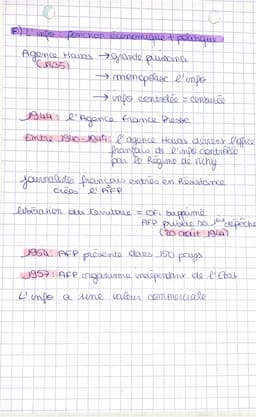 F) L'info fonction économique + politique
Agence Havas → grande puissance
(1835)
→ monopolise l'info
→ info contrôlée = censurée
1944 : l'Agence France Presse
Entre 1940-1944 : l'agence Havas devient l'office
français de l'info contrôlée
par le Régime de Vichy
journalistes français entrés en Résistance
créés l'AFP
libération du territoire = OFI supprimé
AFP publie sa 1ère dépêche
(20 août 1944)
1954 : AFP présente dans 150 pays
1957 : AFP organisme indépendant de l'Etat
L'info a une valeur commerciale